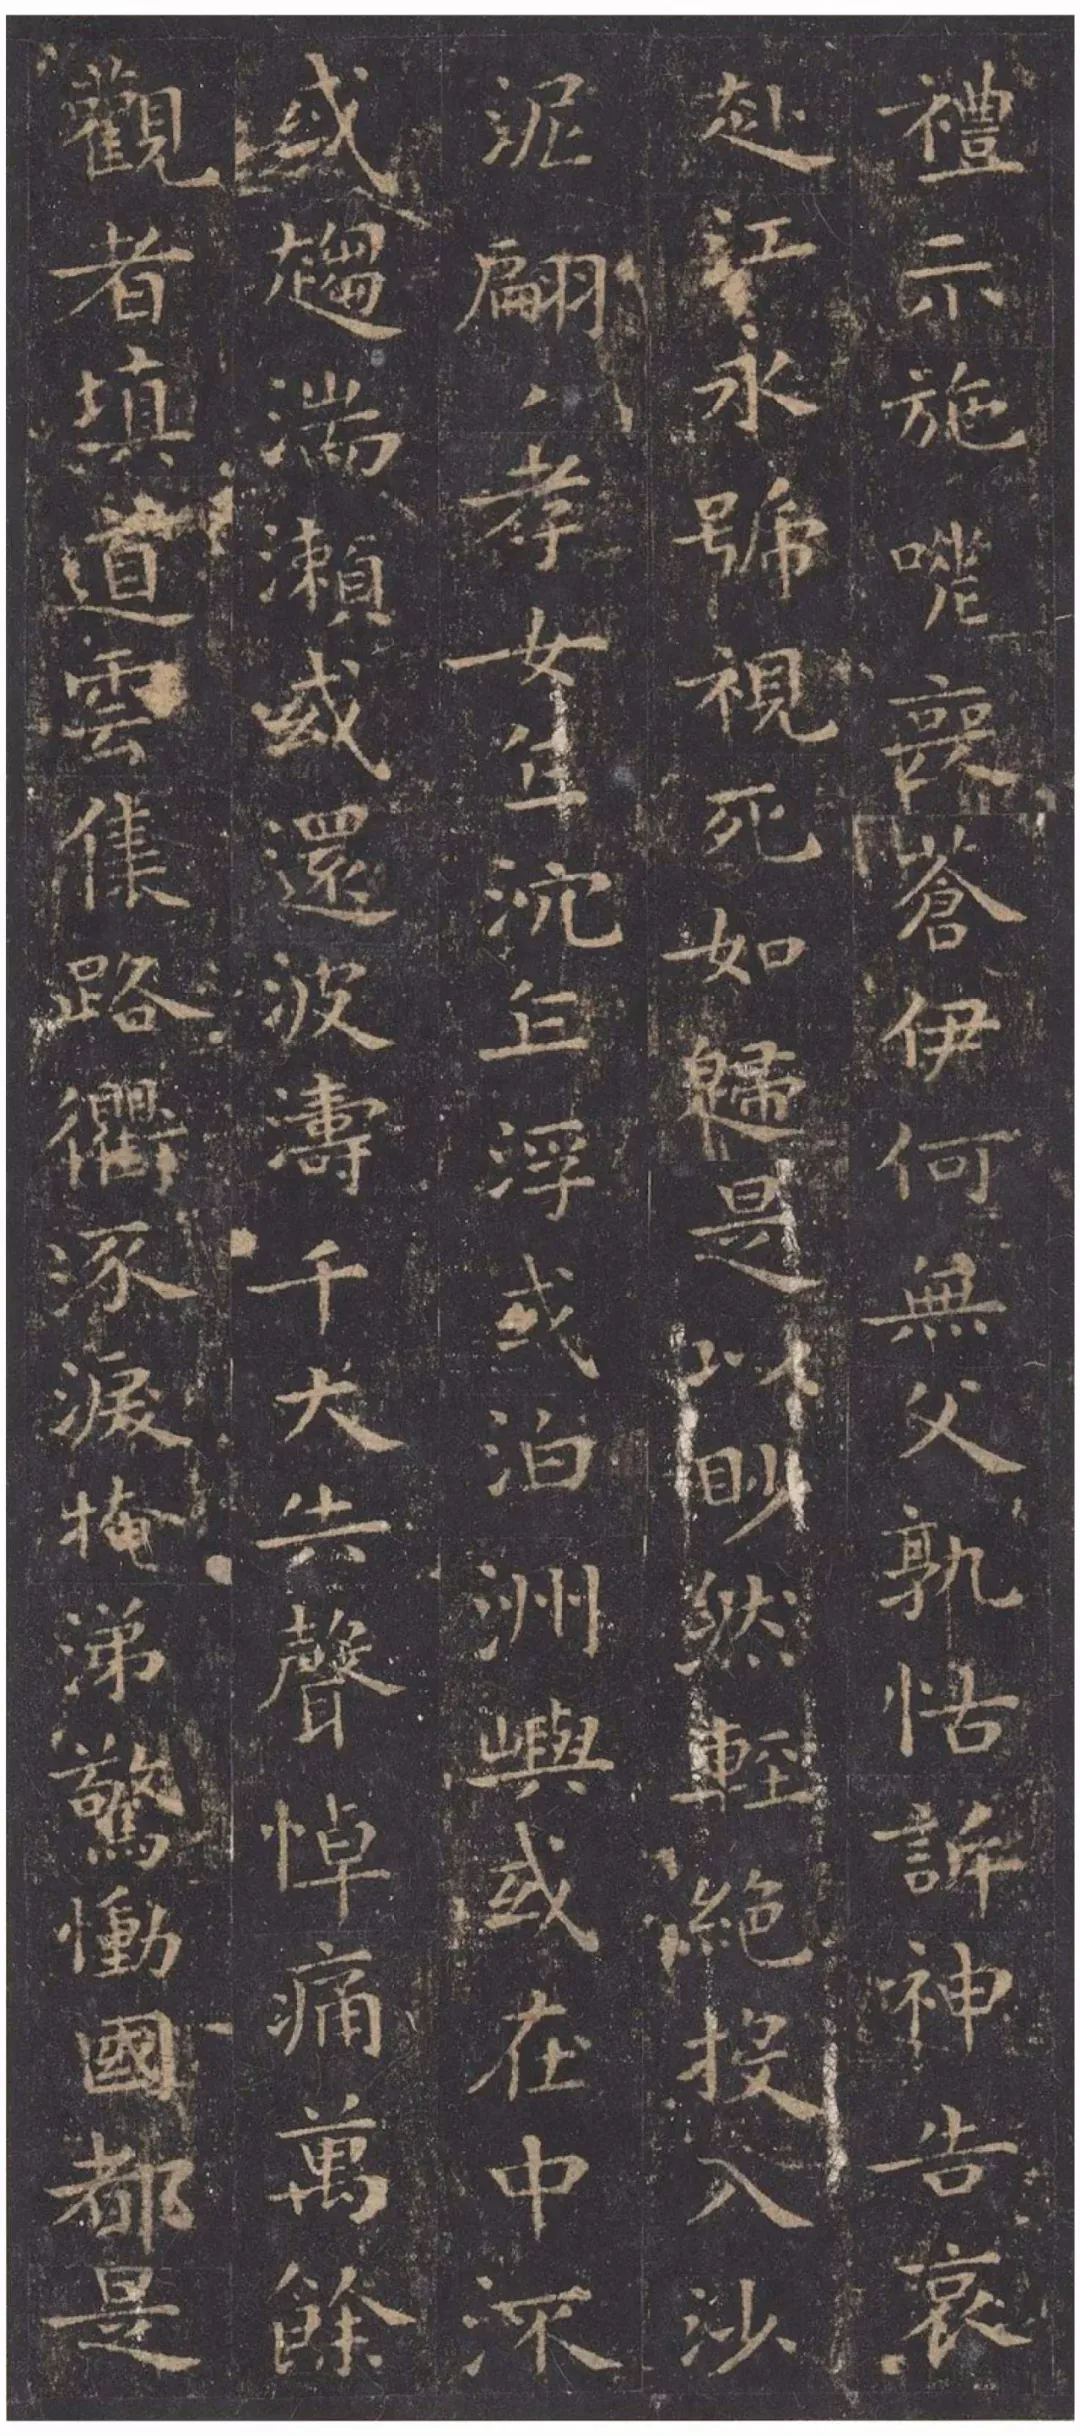 禮示施嗟喪蒼伊何無父孰怙訴神告哀
赴江永號視死如歸是以眇然輕絕投入沙
泥翩〻孝女乍沈乍浮或泊洲嶼或在中流
或趨湍瀨或還波濤千夫失聲悼痛萬餘
觀者填道雲集路衢流淚掩涕驚慟國都是